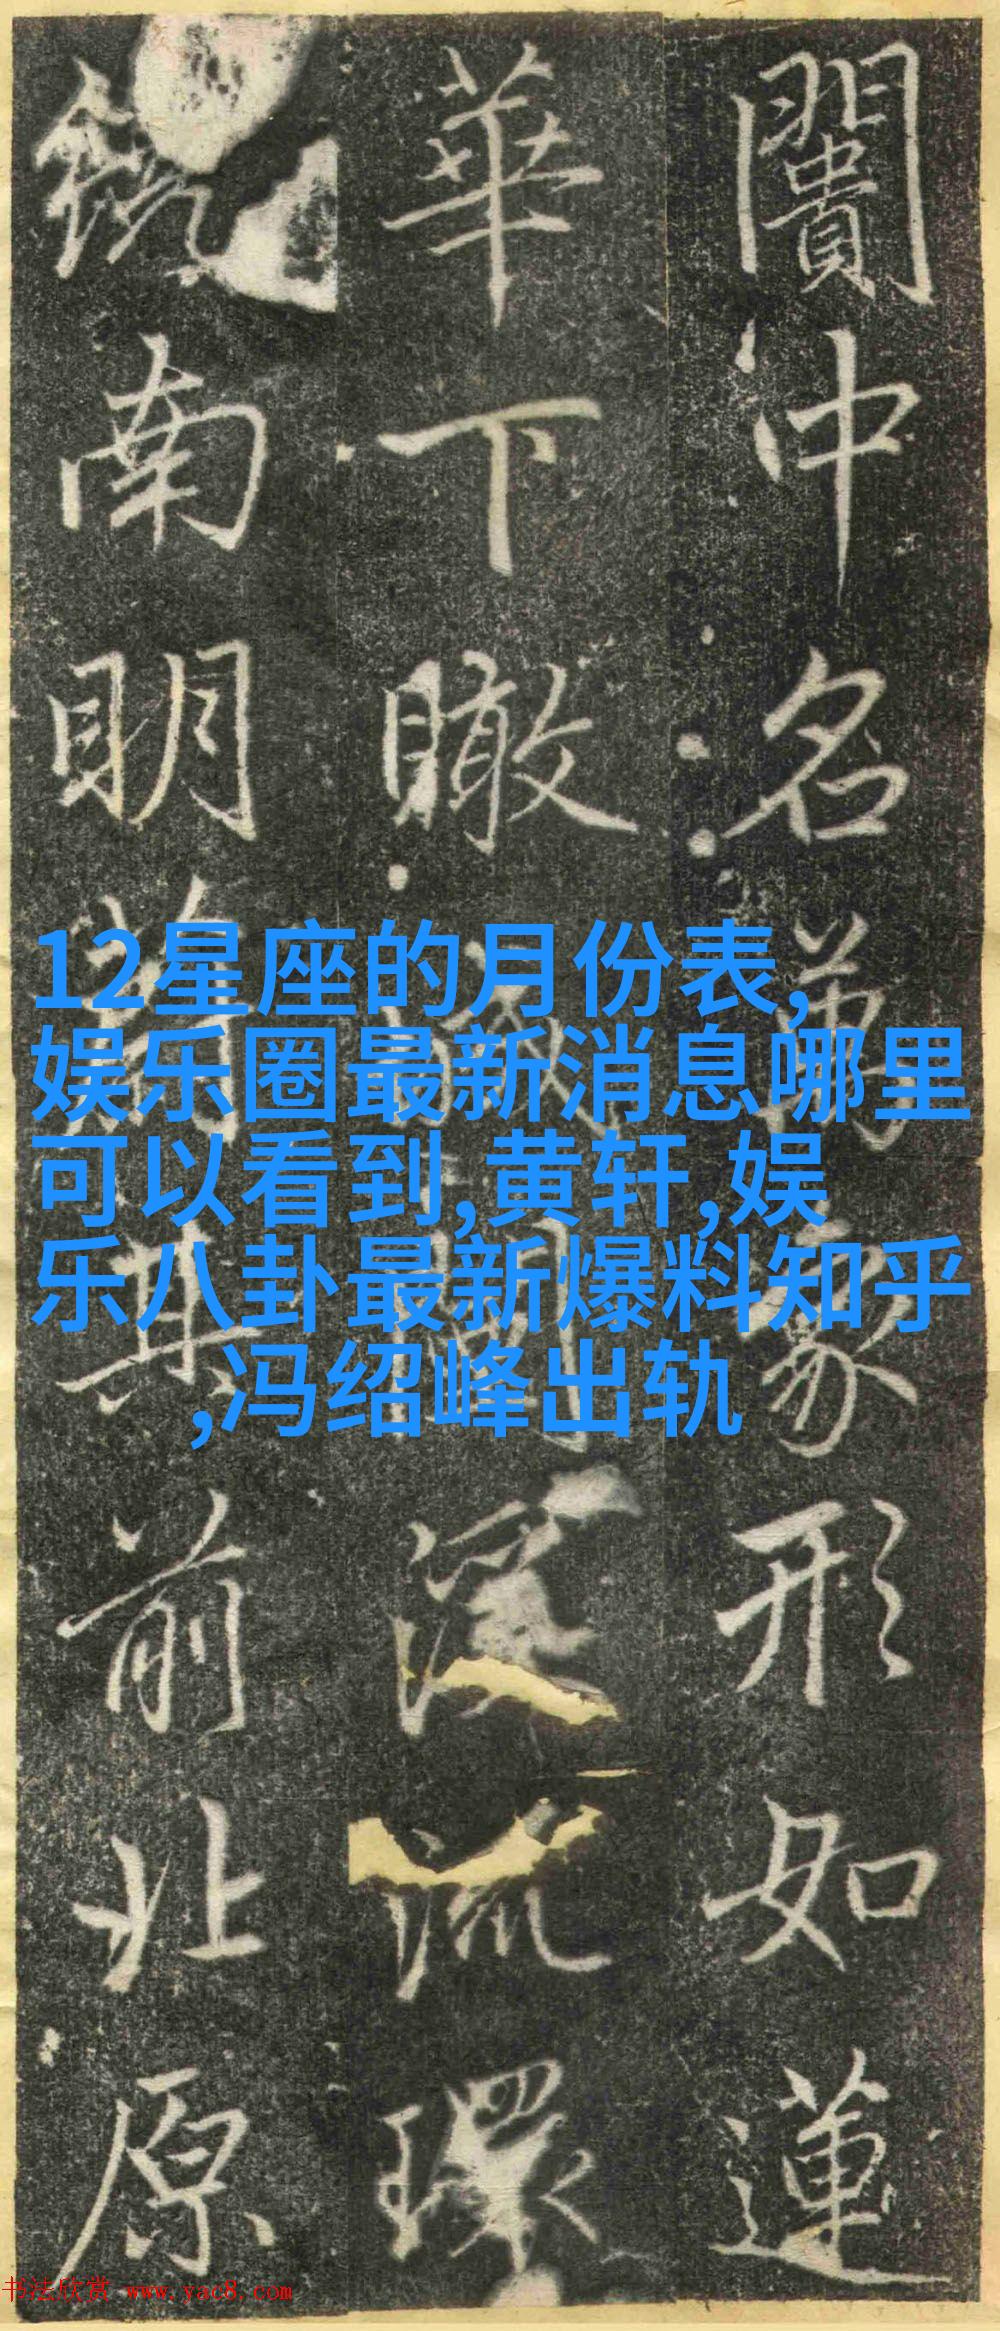 闠中名萬象形如蓮
華下瞰
南明
其前北原
12星座的月份表,
娱乐圈最新消息哪里
可以看到,黄轩,娱
乐八卦最新爆料知乎
,冯绍峰出轨
书法欣赏 www.yac8.com